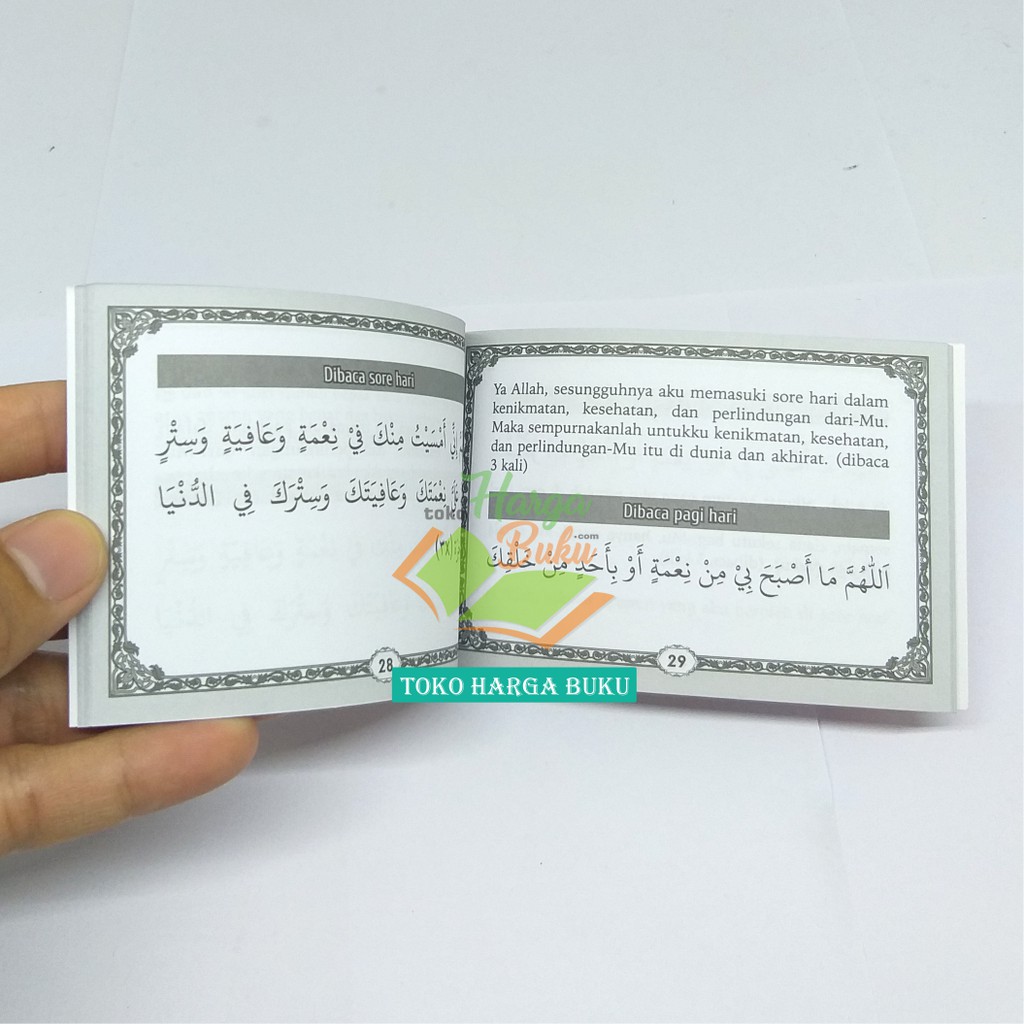 Dibaca sore hari
إِنِّي أَمْسَيْتُ مِنْكَ فِيْ نِعْمَةٍ وَعَافِيَةٍ وَسِتْرٍ
نِعْمَتَكَ وَعَافِيَتَكَ وَسِتْرَكَ فِي الدُّنْيَا
(٣x)
28
Ya Allah, sesungguhnya aku memasuki sore hari dalam
kenikmatan, kesehatan, dan perlindungan dari-Mu.
Maka sempurnakanlah untukku kenikmatan, kesehatan,
dan perlindungan-Mu itu di dunia dan akhirat. (dibaca
3 kali)
Dibaca pagi hari
اَللّٰهُمَّ مَا أَصْبَحَ بِيْ مِنْ نِعْمَةٍ أَوْ بِأَحَدٍ مِنْ خَلْقِكَ
29
toko Harga
Buku.com
TOKO HARGA BUKU